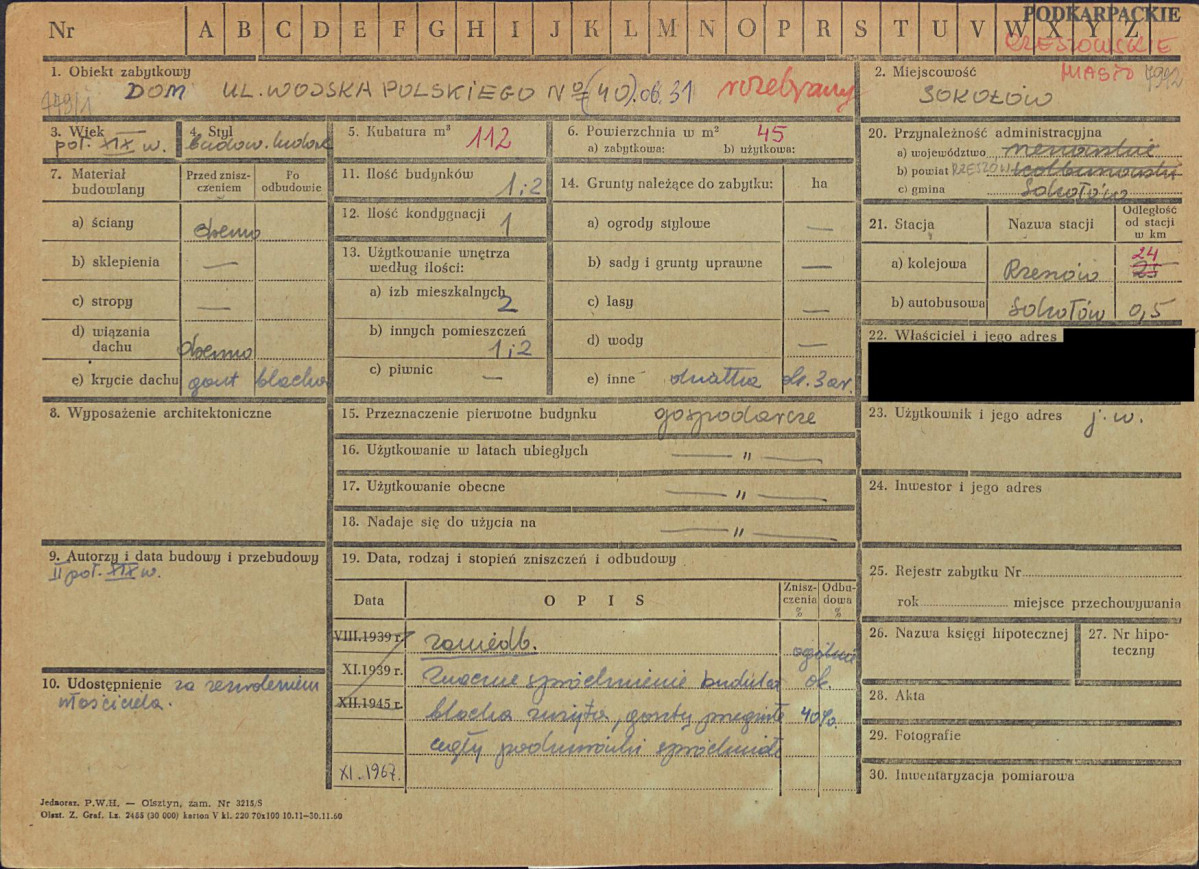 Nr A B C D E F G H I J K L M N O P R S T U V W X Y Z
PODKARPACKIE
RZESZOWSKIE
MIASTO
1. Obiekt zabytkowy
DOM UL. WOJSKA POLSKIEGO No (40) ob. 31 rozebrany
2. Miejscowość
SOKOŁÓW
3. Wiek
poł. XIX w.
4. Styl
budow. ludow.
5. Kubatura m³ 112
6. Powierzchnia w m² 45
a) zabytkowa: b) użytkowa:
7. Materiał budowlany
Przed zniszczeniem
Po odbudowie
a) ściany drewno
b) sklepienia —
c) stropy —
d) wiązania dachu drewno
e) krycie dachu gont blacha
8. Wyposażenie architektoniczne
9. Autorzy i data budowy i przebudowy
II poł. XIX w.
10. Udostępnienie za zezwoleniem
właściciela.
11. Ilość budynków 1;2
12. Ilość kondygnacji 1
13. Użytkowanie wnętrza
według ilości:
a) izb mieszkalnych 2
b) innych pomieszczeń 1;2
c) piwnic —
14. Grunty należące do zabytku: ha
a) ogrody stylowe —
b) sady i grunty uprawne —
c) lasy —
d) wody —
e) inne działka ok. 3 ar.
15. Przeznaczenie pierwotne budynku gospodarcze
16. Użytkowanie w latach ubiegłych — " —
17. Użytkowanie obecne — " —
18. Nadaje się do użycia na — " —
19. Data, rodzaj i stopień zniszczeń i odbudowy
Data O P I S Zniszczenia % Odbudowa %
VIII.1939 r. zaniedb. ogólnie
XI.1939 r. Znaczne spróchnienie budulca ok.
XII.1945 r. blacha zużyta, gonty przegniłe 40%.
części podwaliny spróchniałe
XI.1967.
20. Przynależność administracyjna
a) województwo rzeszowskie
b) powiat RZESZÓW kolbuszowski
c) gmina Sokołów
21. Stacja Nazwa stacji Odległość od stacji w km
24
a) kolejowa Rzeszów 25
b) autobusowa Sokołów 0,5
22. Właściciel i jego adres
23. Użytkownik i jego adres j. w.
24. Inwestor i jego adres
25. Rejestr zabytku Nr
rok miejsce przechowywania
26. Nazwa księgi hipotecznej
27. Nr hipoteczny
28. Akta
29. Fotografie
30. Inwentaryzacja pomiarowa
Jednoraz. P.W.H. — Olsztyn, zam. Nr 3215/S
Olszt. Z. Graf. Lz. 2485 (30 000) karton V kl. 220 70x100 10.11—30.11.60